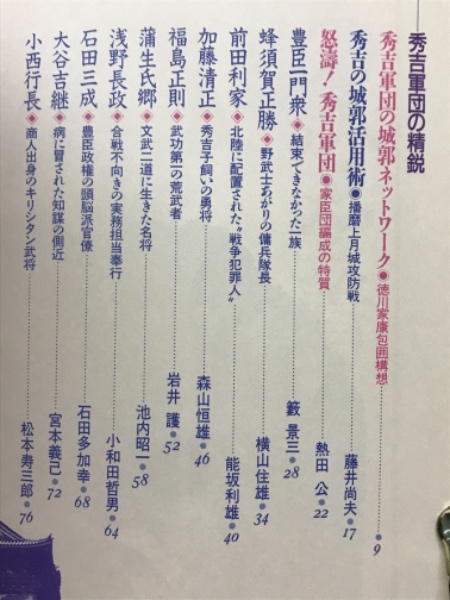 秀吉軍団の精鋭
秀吉軍団の城郭ネットワーク●徳川家康包囲構想……9
秀吉の城郭活用術●播磨上月城攻防戦……藤井尚夫●17
怒濤!秀吉軍団●家臣団編成の特質……熱田 公●22
豊臣一門衆◆結束できなかった一族……籔 景三●28
蜂須賀正勝◆野武士あがりの傭兵隊長……横山住雄●34
前田利家◆北陸に配置された“戦争犯罪人”……能坂利雄●40
加藤清正◆秀吉子飼いの勇将……森山恒雄●46
福島正則◆武功第一の荒武者……岩井 護●52
蒲生氏郷◆文武二道に生きた名将……池内昭一●58
浅野長政◆合戦不向きの実務担当奉行……小和田哲男●64
石田三成◆豊臣政権の頭脳派官僚……石田多加幸●68
大谷吉継◆病に冒された知謀の側近……宮本義己●72
小西行長◆商人出身のキリシタン武将……松本寿三郎●76